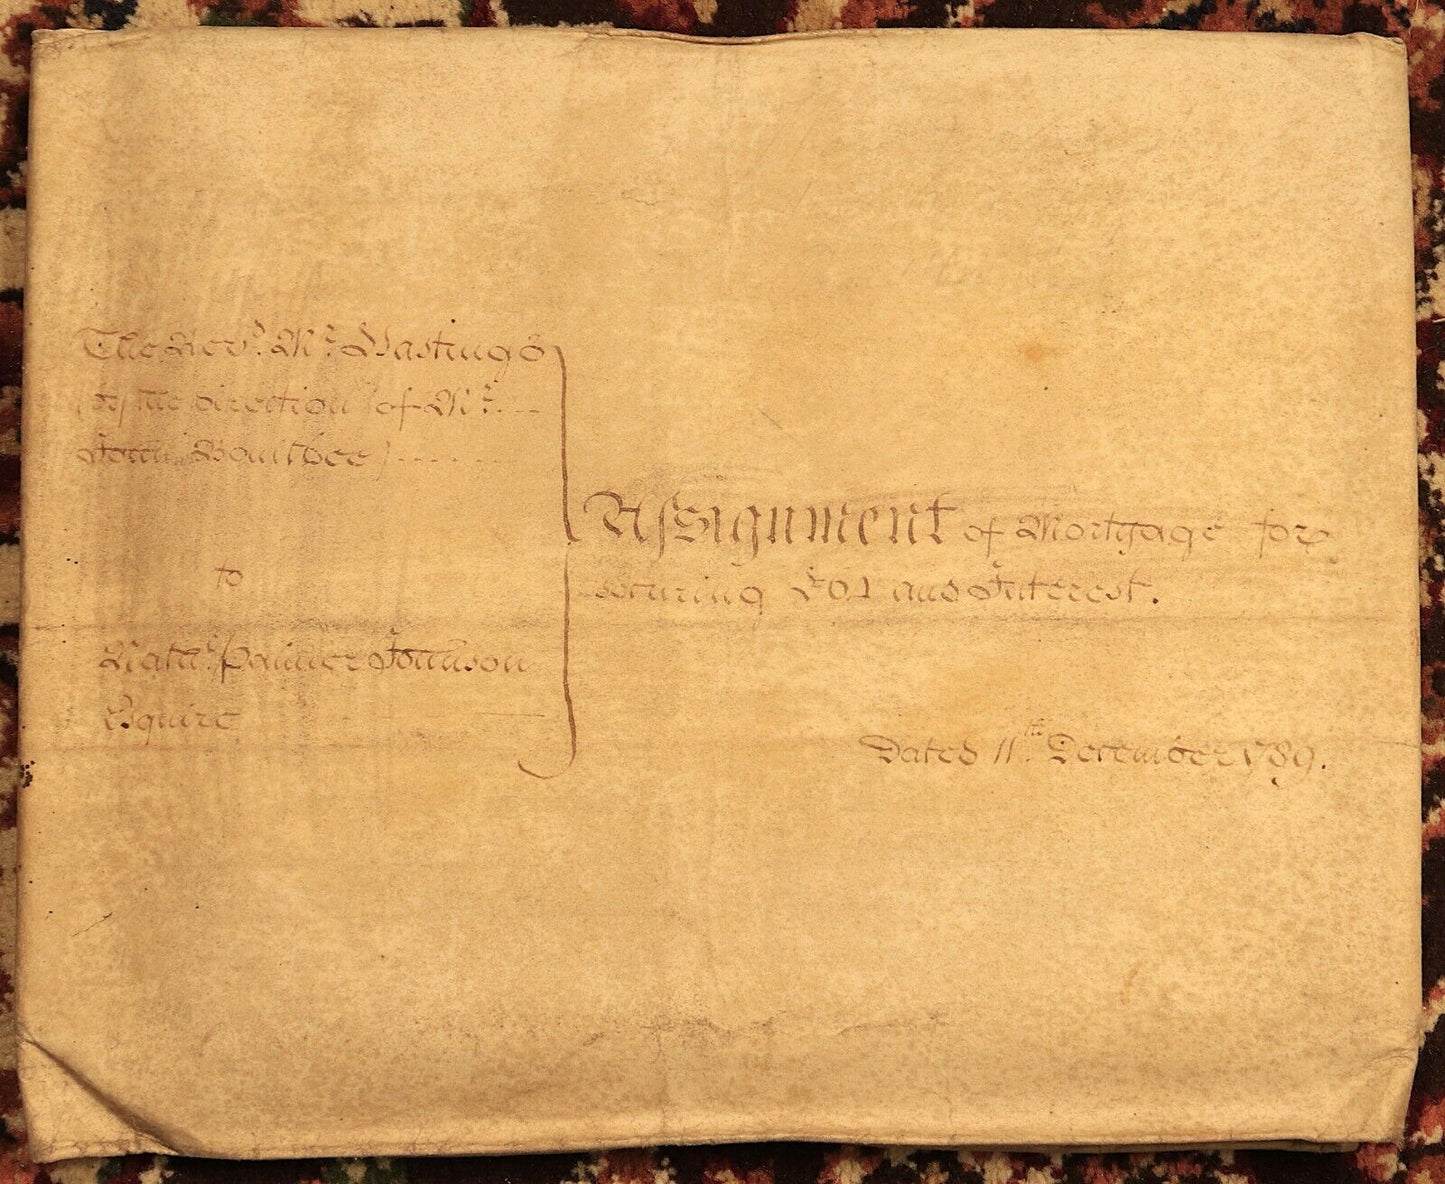 The Revd. Mr. Hastings
by the direction of Mr. ---
John Boultbee) -------
to
Nathl. Palmer Johnson
Esquire
Assignment of Mortgage for
securing and Interest.
Dated 11th December 1789.